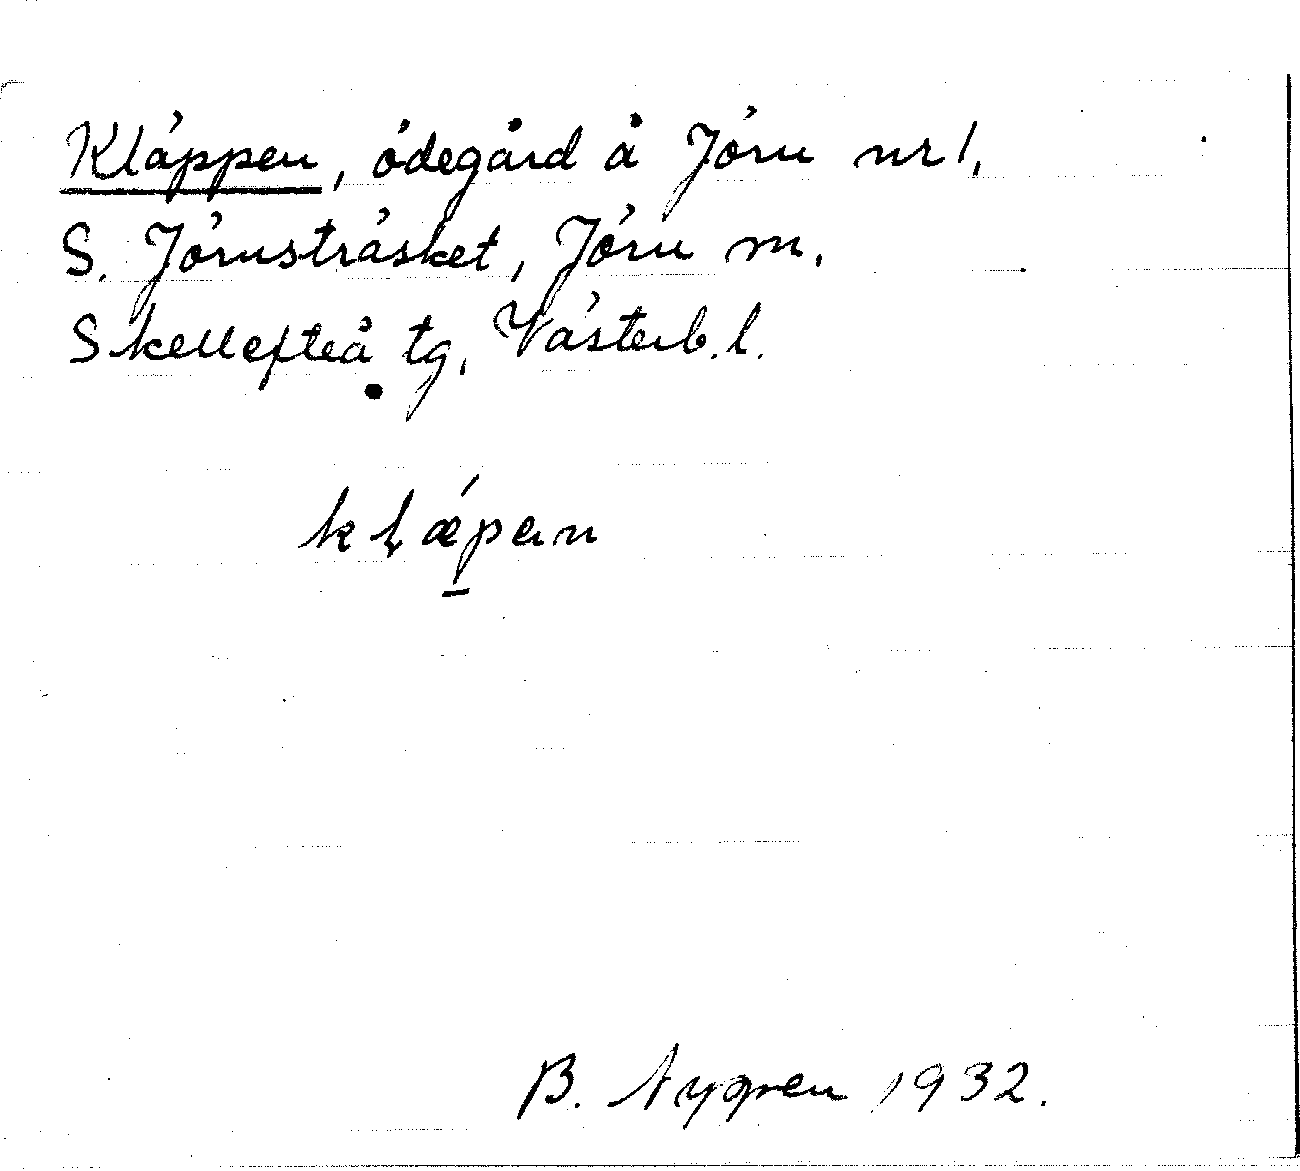 Kläppen, ödegård å Jörn nr 1,
S. Jörnsträsket, Jörn sn.
Skellefteå tg, Västerb. l.
kḷæ´p̲ən
B. 1932.